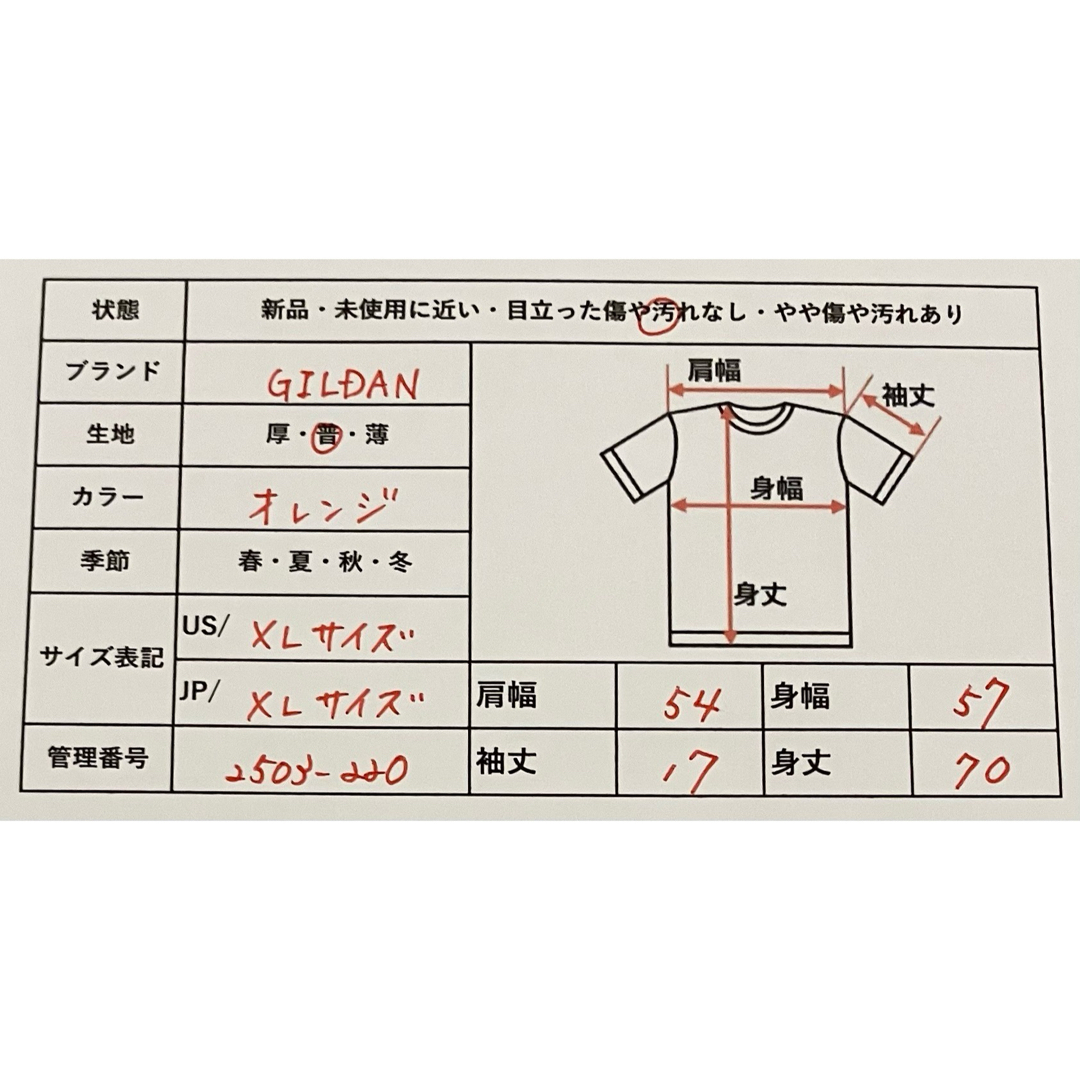 状態 新品・未使用に近い・目立った傷や汚れなし・やや傷や汚れあり
ブランド GILDAN
生地 厚・普・薄
カラー オレンジ
季節 春・夏・秋・冬
サイズ表記
US/ XLサイズ
JP/ XLサイズ
管理番号 2503-220
肩幅
袖丈
身幅
身丈
肩幅 54 身幅 57
袖丈 17 身丈 70